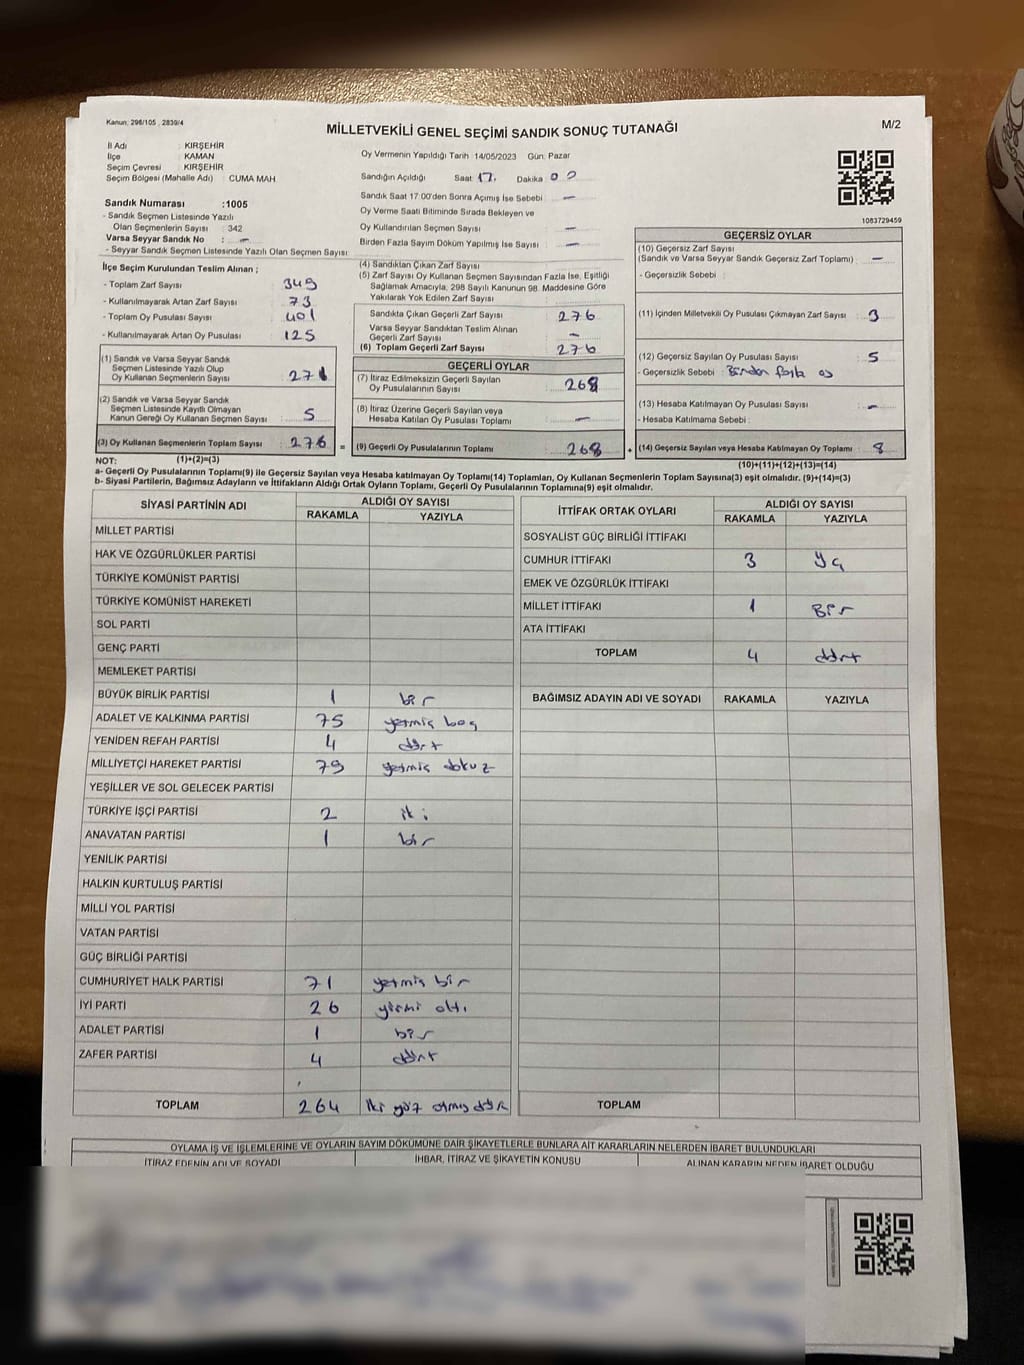 Kanun: 298/105 , 2839/4
MİLLETVEKİLİ GENEL SEÇİMİ SANDIK SONUÇ TUTANAĞI
M/2
İl Adı : KIRŞEHİR
İlçe : KAMAN
Seçim Çevresi : KIRŞEHİR
Seçim Bölgesi (Mahalle Adı) : CUMA MAH.
Sandık Numarası :1005
- Sandık Seçmen Listesinde Yazılı
Olan Seçmenlerin Sayısı : 342
Varsa Seyyar Sandık No : -
- Seyyar Sandık Seçmen Listesinde Yazılı Olan Seçmen Sayısı :
Oy Vermenin Yapıldığı Tarih :14/05/2023 Gün: Pazar
Sandığın Açıldığı Saat 17. Dakika 00
Sandık Saat 17:00'den Sonra Açımış İse Sebebi : -
Oy Verme Saati Bitiminde Sırada Bekleyen ve
Oy Kullandırılan Seçmen Sayısı : -
Birden Fazla Sayım Döküm Yapılmış İse Sayısı : -
1083729459
İlçe Seçim Kurulundan Teslim Alınan ;
- Toplam Zarf Sayısı : 349
- Kullanılmayarak Artan Zarf Sayısı : 73
- Toplam Oy Pusulası Sayısı : 401
- Kullanılmayarak Artan Oy Pusulası : 125
(1) Sandık ve Varsa Seyyar Sandık
Seçmen Listesinde Yazılı Olup
Oy Kullanan Seçmenlerin Sayısı : 271
(2) Sandık ve Varsa Seyyar Sandık
Seçmen Listesinde Kayıtlı Olmayan
Kanun Gereği Oy Kullanan Seçmen Sayısı : 5
(3) Oy Kullanan Seçmenlerin Toplam Sayısı : 276
(4) Sandıktan Çıkan Zarf Sayısı :
(5) Zarf Sayısı Oy Kullanan Seçmen Sayısından Fazla İse, Eşitliği
Sağlamak Amacıyla, 298 Sayılı Kanunun 98. Maddesine Göre
Yakılarak Yok Edilen Zarf Sayısı :
Sandıkta Çıkan Geçerli Zarf Sayısı : 276
Varsa Seyyar Sandıktan Teslim Alınan
Geçerli Zarf Sayısı : -
(6) Toplam Geçerli Zarf Sayısı : 276
GEÇERLİ OYLAR
(7) İtiraz Edilmeksizin Geçerli Sayılan
Oy Pusulalarının Sayısı : 268
(8) İtiraz Üzerine Geçerli Sayılan veya
Hesaba Katılan Oy Pusulaları Toplamı : -
= (9) Geçerli Oy Pusulalarının Toplamı : 268
GEÇERSİZ OYLAR
(10) Geçersiz Zarf Sayısı
(Sandık ve Varsa Seyyar Sandık Geçersiz Zarf Toplamı) : -
- Geçersizlik Sebebi :
(11) İçinden Milletvekili Oy Pusulası Çıkmayan Zarf Sayısı : 3
(12) Geçersiz Sayılan Oy Pusulası Sayısı : 5
- Geçersizlik Sebebi : Birden fazla oy
(13) Hesaba Katılmayan Oy Pusulası Sayısı : -
- Hesaba Katılmama Sebebi :
+ (14) Geçersiz Sayılan veya Hesaba Katılmayan Oy Toplamı : 8
NOT: (1)+(2)=(3)
(10)+(11)+(12)+(13)=(14)
a- Geçerli Oy Pusulalarının Toplamı(9) ile Geçersiz Sayılan veya Hesaba katılmayan Oy Toplamı(14) Toplamları, Oy Kullanan Seçmenlerin Toplam Sayısına(3) eşit olmalıdır. (9)+(14)=(3)
b- Siyasi Partilerin, Bağımsız Adayların ve İttifakların Aldığı Ortak Oyların Toplamı, Geçerli Oy Pusulalarının Toplamına(9) eşit olmalıdır.
SİYASİ PARTİNİN ADI
ALDIĞI OY SAYISI
RAKAMLA YAZIYLA
MİLLET PARTİSİ
HAK VE ÖZGÜRLÜKLER PARTİSİ
TÜRKİYE KOMÜNİST PARTİSİ
TÜRKİYE KOMÜNİST HAREKETİ
SOL PARTİ
GENÇ PARTİ
MEMLEKET PARTİSİ
BÜYÜK BİRLİK PARTİSİ 1 bir
ADALET VE KALKINMA PARTİSİ 75 yetmiş beş
YENİDEN REFAH PARTİSİ 4 dört
MİLLİYETÇİ HAREKET PARTİSİ 79 yetmiş dokuz
YEŞİLLER VE SOL GELECEK PARTİSİ
TÜRKİYE İŞÇİ PARTİSİ 2 iki
ANAVATAN PARTİSİ 1 bir
YENİLİK PARTİSİ
HALKIN KURTULUŞ PARTİSİ
MİLLİ YOL PARTİSİ
VATAN PARTİSİ
GÜÇ BİRLİĞİ PARTİSİ
CUMHURİYET HALK PARTİSİ 71 yetmiş bir
İYİ PARTİ 26 yirmi altı
ADALET PARTİSİ 1 bir
ZAFER PARTİSİ 4 dört
TOPLAM 264 iki yüz atmış dört
İTTİFAK ORTAK OYLARI
ALDIĞI OY SAYISI
RAKAMLA YAZIYLA
SOSYALİST GÜÇ BİRLİĞİ İTTİFAKI
CUMHUR İTTİFAKI 3 üç
EMEK VE ÖZGÜRLÜK İTTİFAKI
MİLLET İTTİFAKI 1 Bir
ATA İTTİFAKI
TOPLAM 4 dört
BAĞIMSIZ ADAYIN ADI VE SOYADI RAKAMLA YAZIYLA
TOPLAM
OYLAMA İŞ VE İŞLEMLERİNE VE OYLARIN SAYIM DÖKÜMÜNE DAİR ŞİKAYETLERLE BUNLARA AİT KARARLARIN NELERDEN İBARET BULUNDUKLARI
İTİRAZ EDENİN ADI VE SOYADI İHBAR, İTİRAZ VE ŞİKAYETİN KONUSU ALINAN KARARIN NEDEN İBARET OLDUĞU